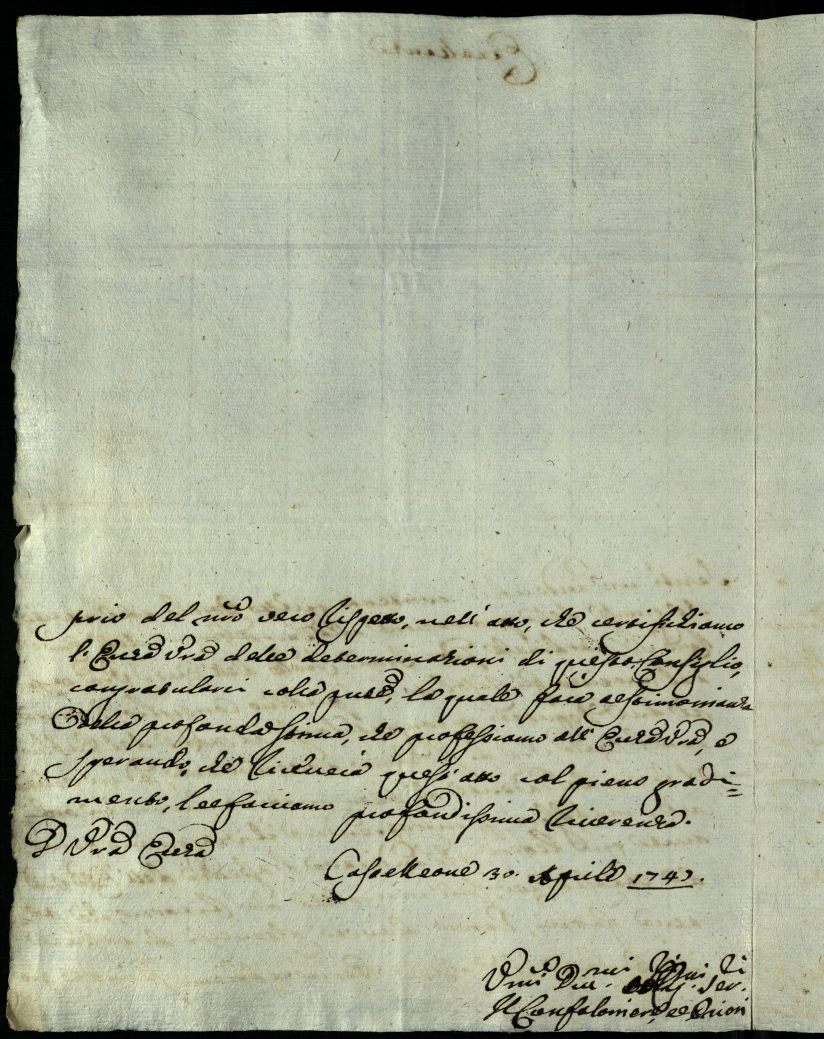 prio del nrõ vero rispetto, nell'atto, che certifichiamo
l'Ecczã Vrã delle determinazioni di questo Consiglio,
congratularci colla put̃e, la quale farà testimonianza
della profonda stima, che professiamo all'Ecczã Vrã, e
sperando, che riuscirà quest'atto col pieno gradi=
mento, le facciamo profondissima riverenza.
D Vrã Ecczã
Castelleone 30 Aprile 174
Vmĩ Dev.mi ser.
Il Confaloniere, e Priori